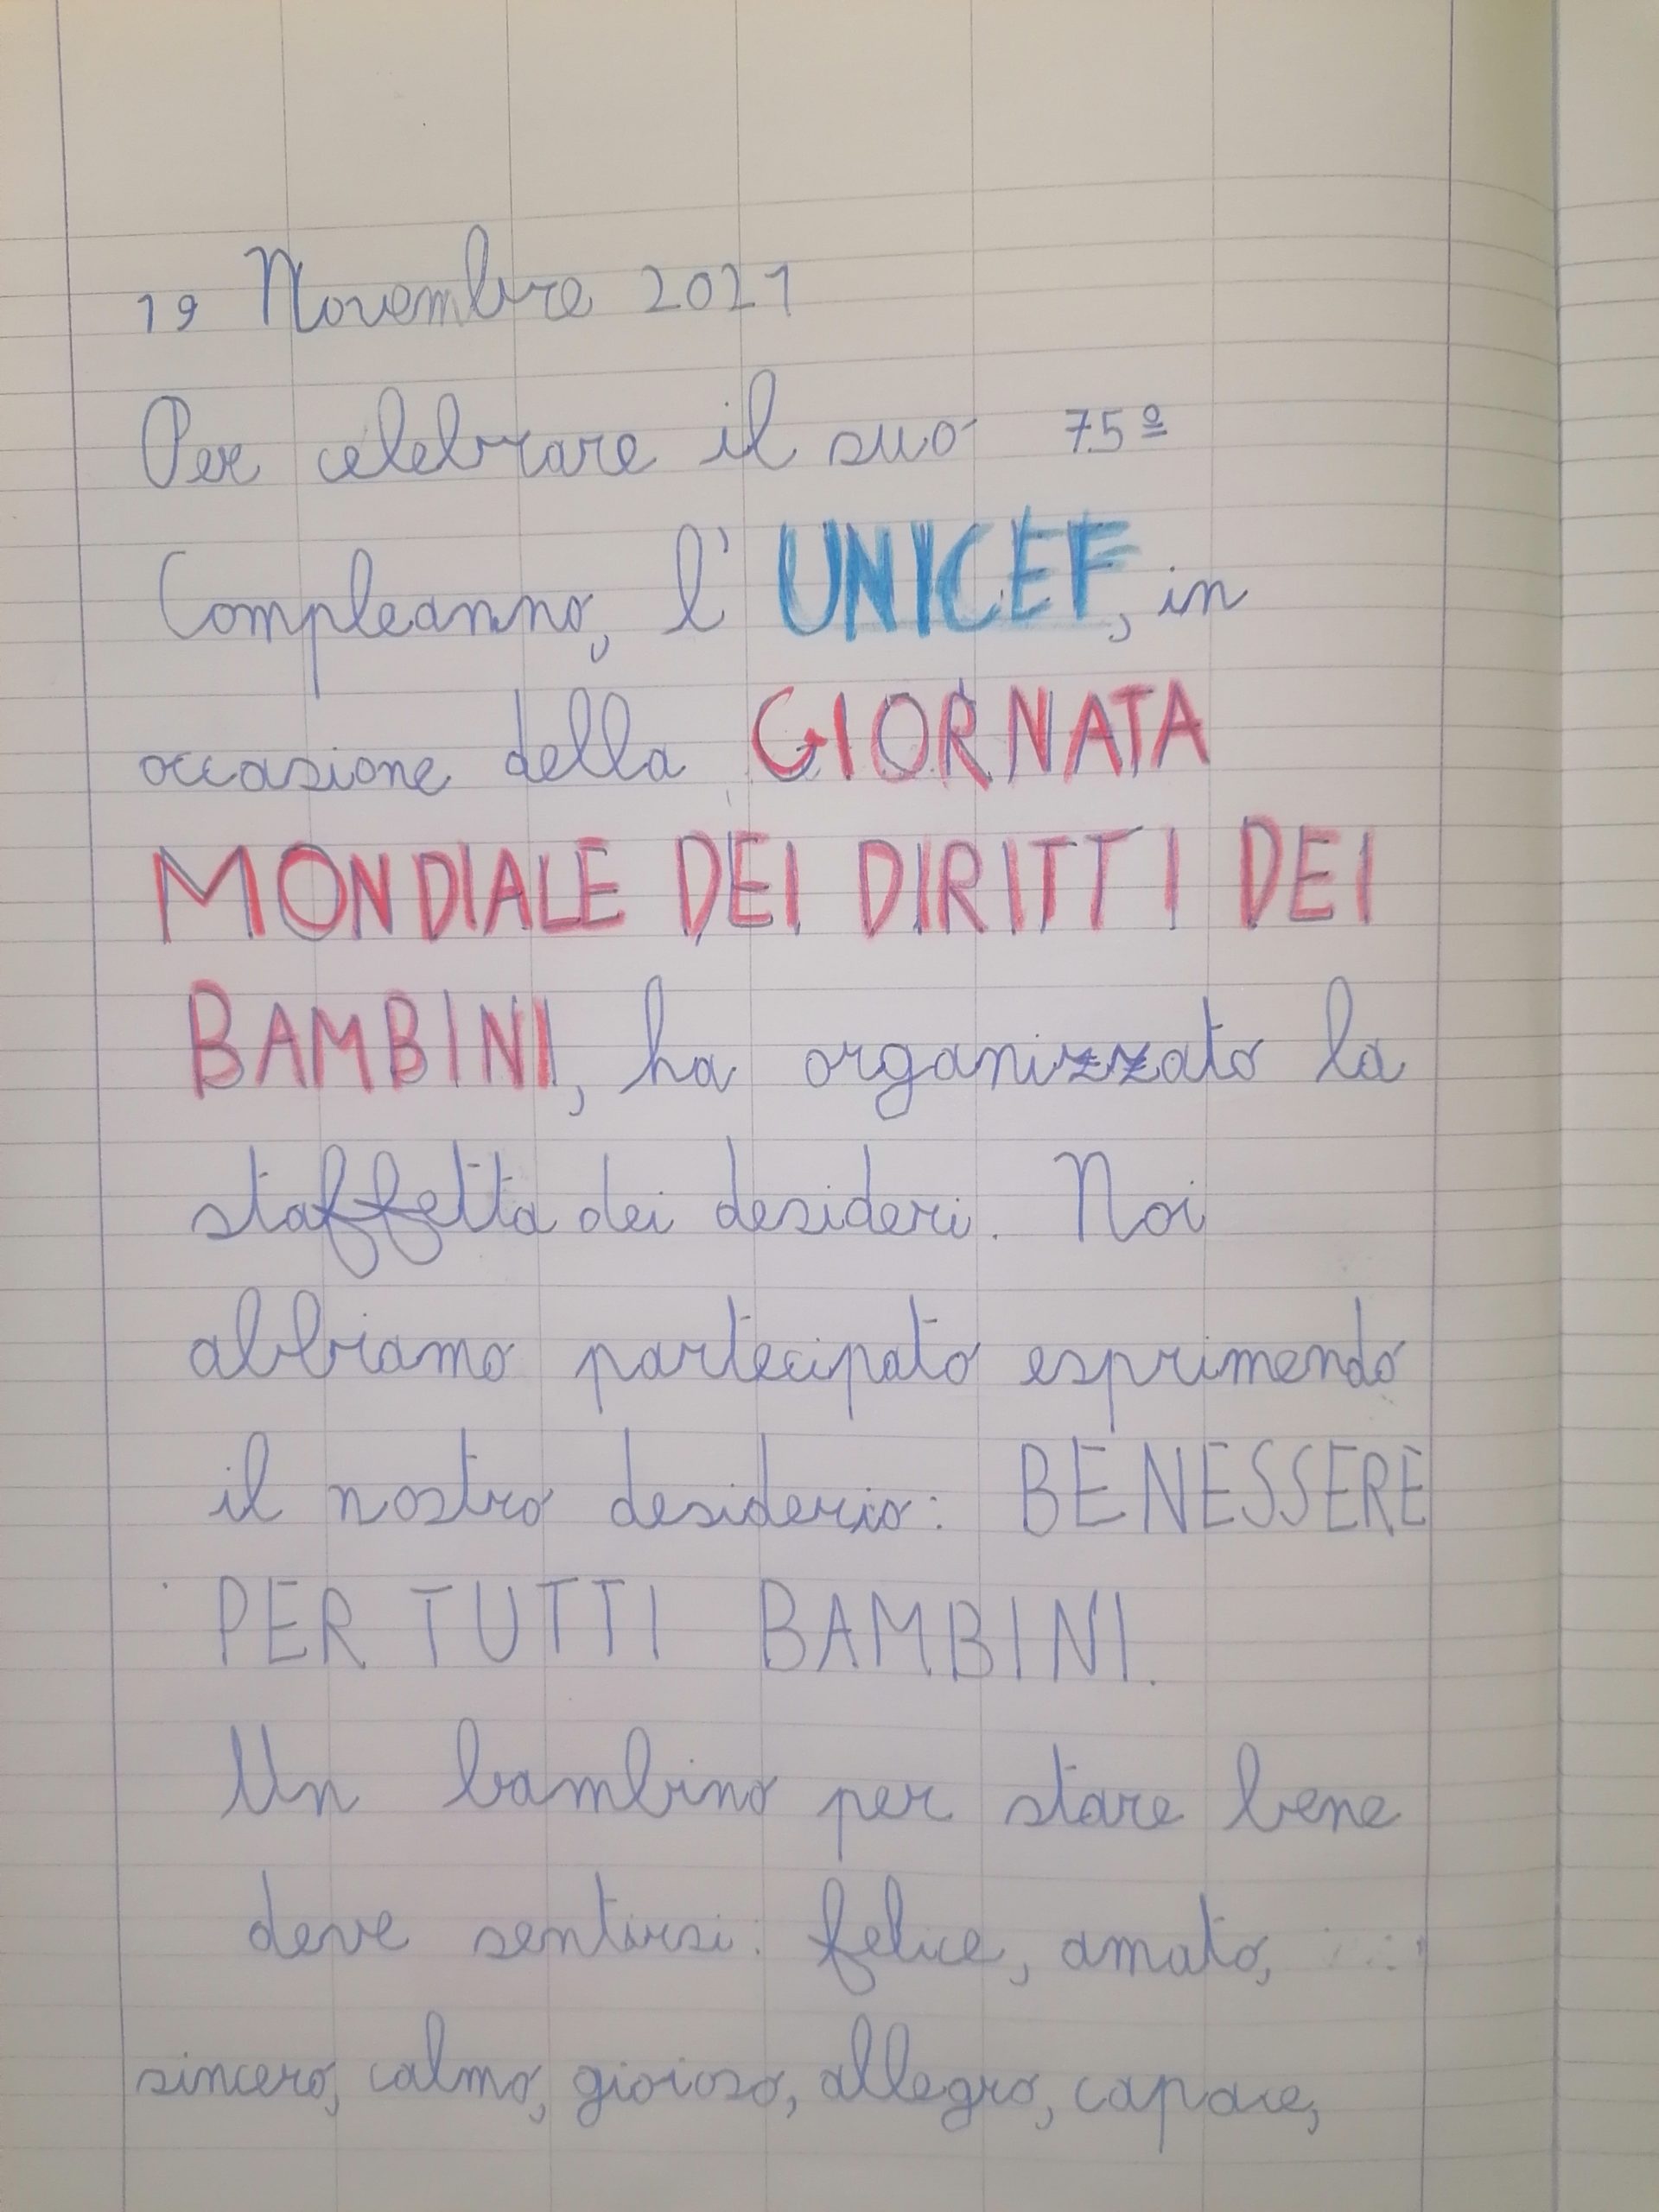 19 Novembre 2021
Per celebrare il suo 75º
Compleanno, l'UNICEF, in
occasione della GIORNATA
MONDIALE DEI DIRITTI DEI
BAMBINI, ha organizzato la
staffetta dei desideri. Noi
abbiamo partecipato esprimendo
il nostro desiderio: BENESSERE
PER TUTTI BAMBINI.
Un bambino per stare bene
deve sentirsi: felice, amato,
sincero, calmo, gioioso, allegro, capace,